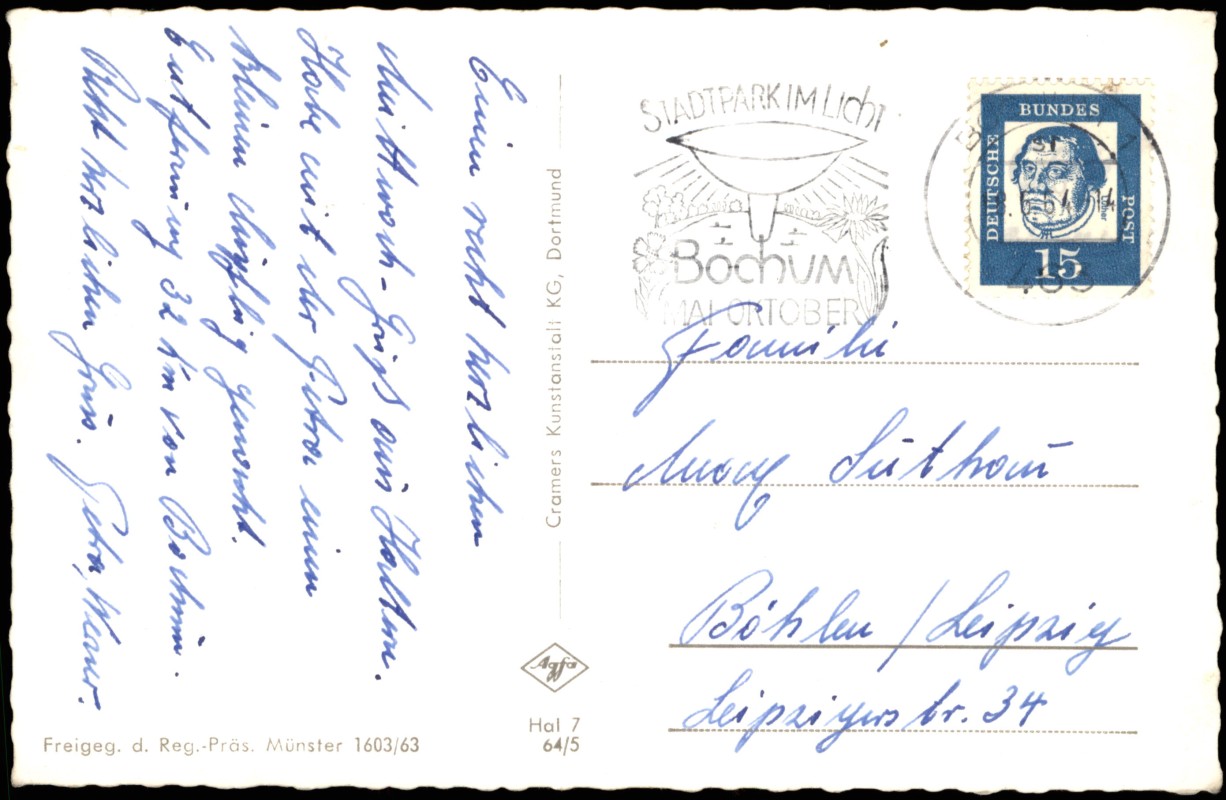 Einen recht herzlichen
Mittwoch-Gruß aus Haltern.
Habe mit der Petra einen
kleinen Ausflug gemacht.
Entfernung 32 km von Bochum.
Recht herzlichen Gruss. Petra, Werner.
Cramers Kunstanstalt KG, Dortmund
Agfa
Hal 7
64/5
Freigeg. d. Reg.-Präs. Münster 1603/63
STADTPARK IM LICHT
BOCHUM
MAI-OKTOBER
DEUTSCHE
BUNDES
POST
Luther
15
463
Familie
Böhlen / Leipzig
Leipzigerstr. 34